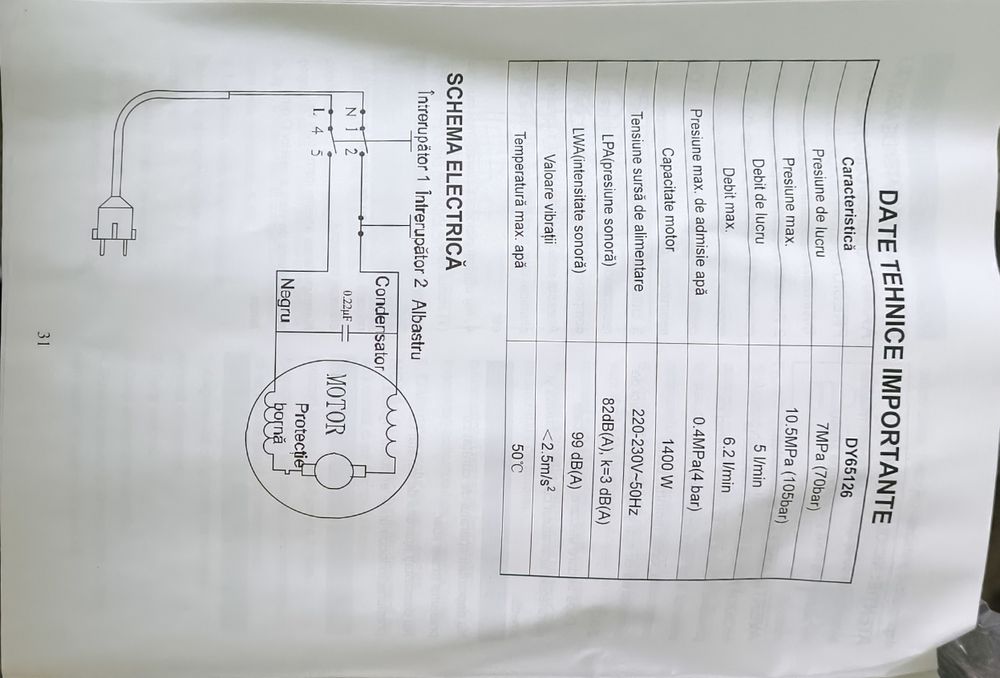 DATE TEHNICE IMPORTANTE
Caracteristică DY65126
Presiune de lucru 7MPa (70bar)
Presiune max. 10.5MPa (105bar)
Debit de lucru 5 l/min
Debit max. 6.2 l/min
Presiune max. de admisie apă 0.4MPa(4 bar)
Capacitate motor 1400 W
Tensiune sursă de alimentare 220-230V~50Hz
LPA(presiune sonoră) 82dB(A), k=3 dB(A)
LWA(intensitate sonoră) 99 dB(A)
Valoare vibrații <2.5m/s²
Temperatură max. apă 50℃
SCHEMA ELECTRICĂ
Întrerupător 1 Întrerupător 2 Albastru
Condensator
N 1 2
0.22μF
MOTOR
L 4 5
Protecție
Negru
bornă
31